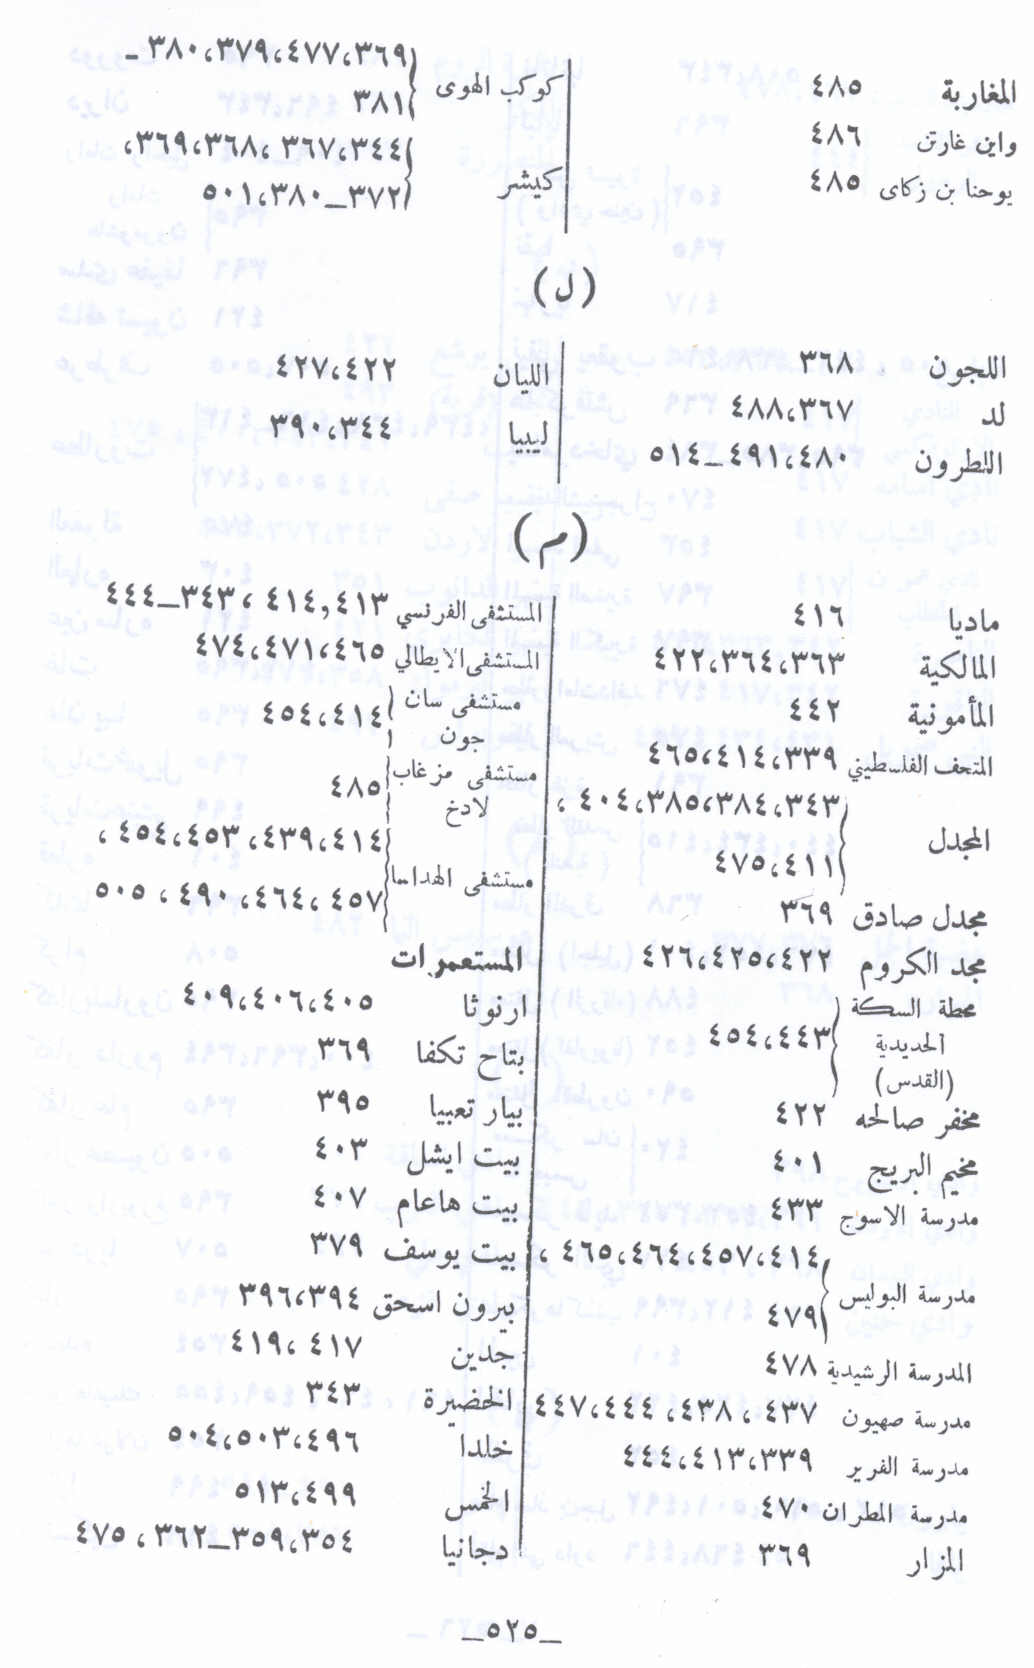 المغاربة ٤٨٥
واين غارتن ٤٨٦
يوحنا بن زكاى ٤٨٥
كوكب الهوى ٣٦٩،٤٧٧،٣٧٩،٣٨٠ـ
٣٨١
كيشر ٣٤٤،٣٦٧، ٣٦٨،٣٦٩،
٣٧٢ــ٣٨٠،٥٠١
(ل)
اللجون ٣٦٨
لد ٣٦٧،٤٨٨
اللطرون ٤٨٠،٤٩١ــ٥١٤
الليان ٤٢٢،٤٢٧
ليبيا ٣٤٤،٣٩٠
(م)
ماديا ٤١٦
المالكية ٣٦٣،٣٦٤،٤٢٢
المأمونية ٤٤٢
المتحف الفلسطيني ٣٣٩،٤١٤،٤٦٥
المجدل ٣٤٣،٣٨٤،٣٨٥،٤٠٤ ،
٤١١،٤٧٥
مجدل صادق ٣٦٩
مجد الكروم ٤٢٢،٤٢٥،٤٢٦
محطة السكة
الحديدية ٤٤٣،٤٥٤
(القدس)
مخفر صالحه ٤٢٢
مخيم البريج ٤٠١
مدرسة الاسوج ٤٣٣
مدرسة البوليس ٤١٤،٤٥٧،٤٦٤،٤٦٥ ،
٤٧٩
المدرسة الرشيدية ٤٧٨
مدرسة صهيون ٤٣٧ ،٤٣٨، ٤٤٤،٤٤٧
مدرسة الفرير ٣٣٩،٤١٣،٤٤٤
مدرسة المطران ٤٧٠
المزار ٣٦٩
المستشفى الفرنسي ٤١٣,٤١٤ ،٣٤٣ــ٤٤٤
المستشفى الايطالي ٤٦٥،٤٧١،٤٧٤
مستشفى سان
جون ٤١٤،٤٥٤
مستشفى مزغاب
لادخ ٤٨٥
مستشفى الهداسا ٤١٤،٤٣٩ ،٤٥٣،٤٥٤ ،
٤٥٧،٤٦٤،٤٩٠ ،٥٠٥
المستعمرات
ارتوثا ٤٠٥،٤٠٦،٤٠٩
بتاح تكفا ٣٦٩
بيار تعبيا ٣٩٥
بيت ايشل ٤٠٣
بيت هاعام ٤٠٧
بيت يوسف ٣٧٩
بيرون اسحق ٣٩٤،٣٩٦
جدين ٤١٧ ،٤١٩
الخضيرة ٣٤٣
خلدا ٤٩٦،٥٠٣،٥٠٤
الخمس ٤٩٩،٥١٣
دجانيا ٣٥٤،٣٥٩ــ٣٦٢ ،٤٧٥
ــ٥٢٥ــ